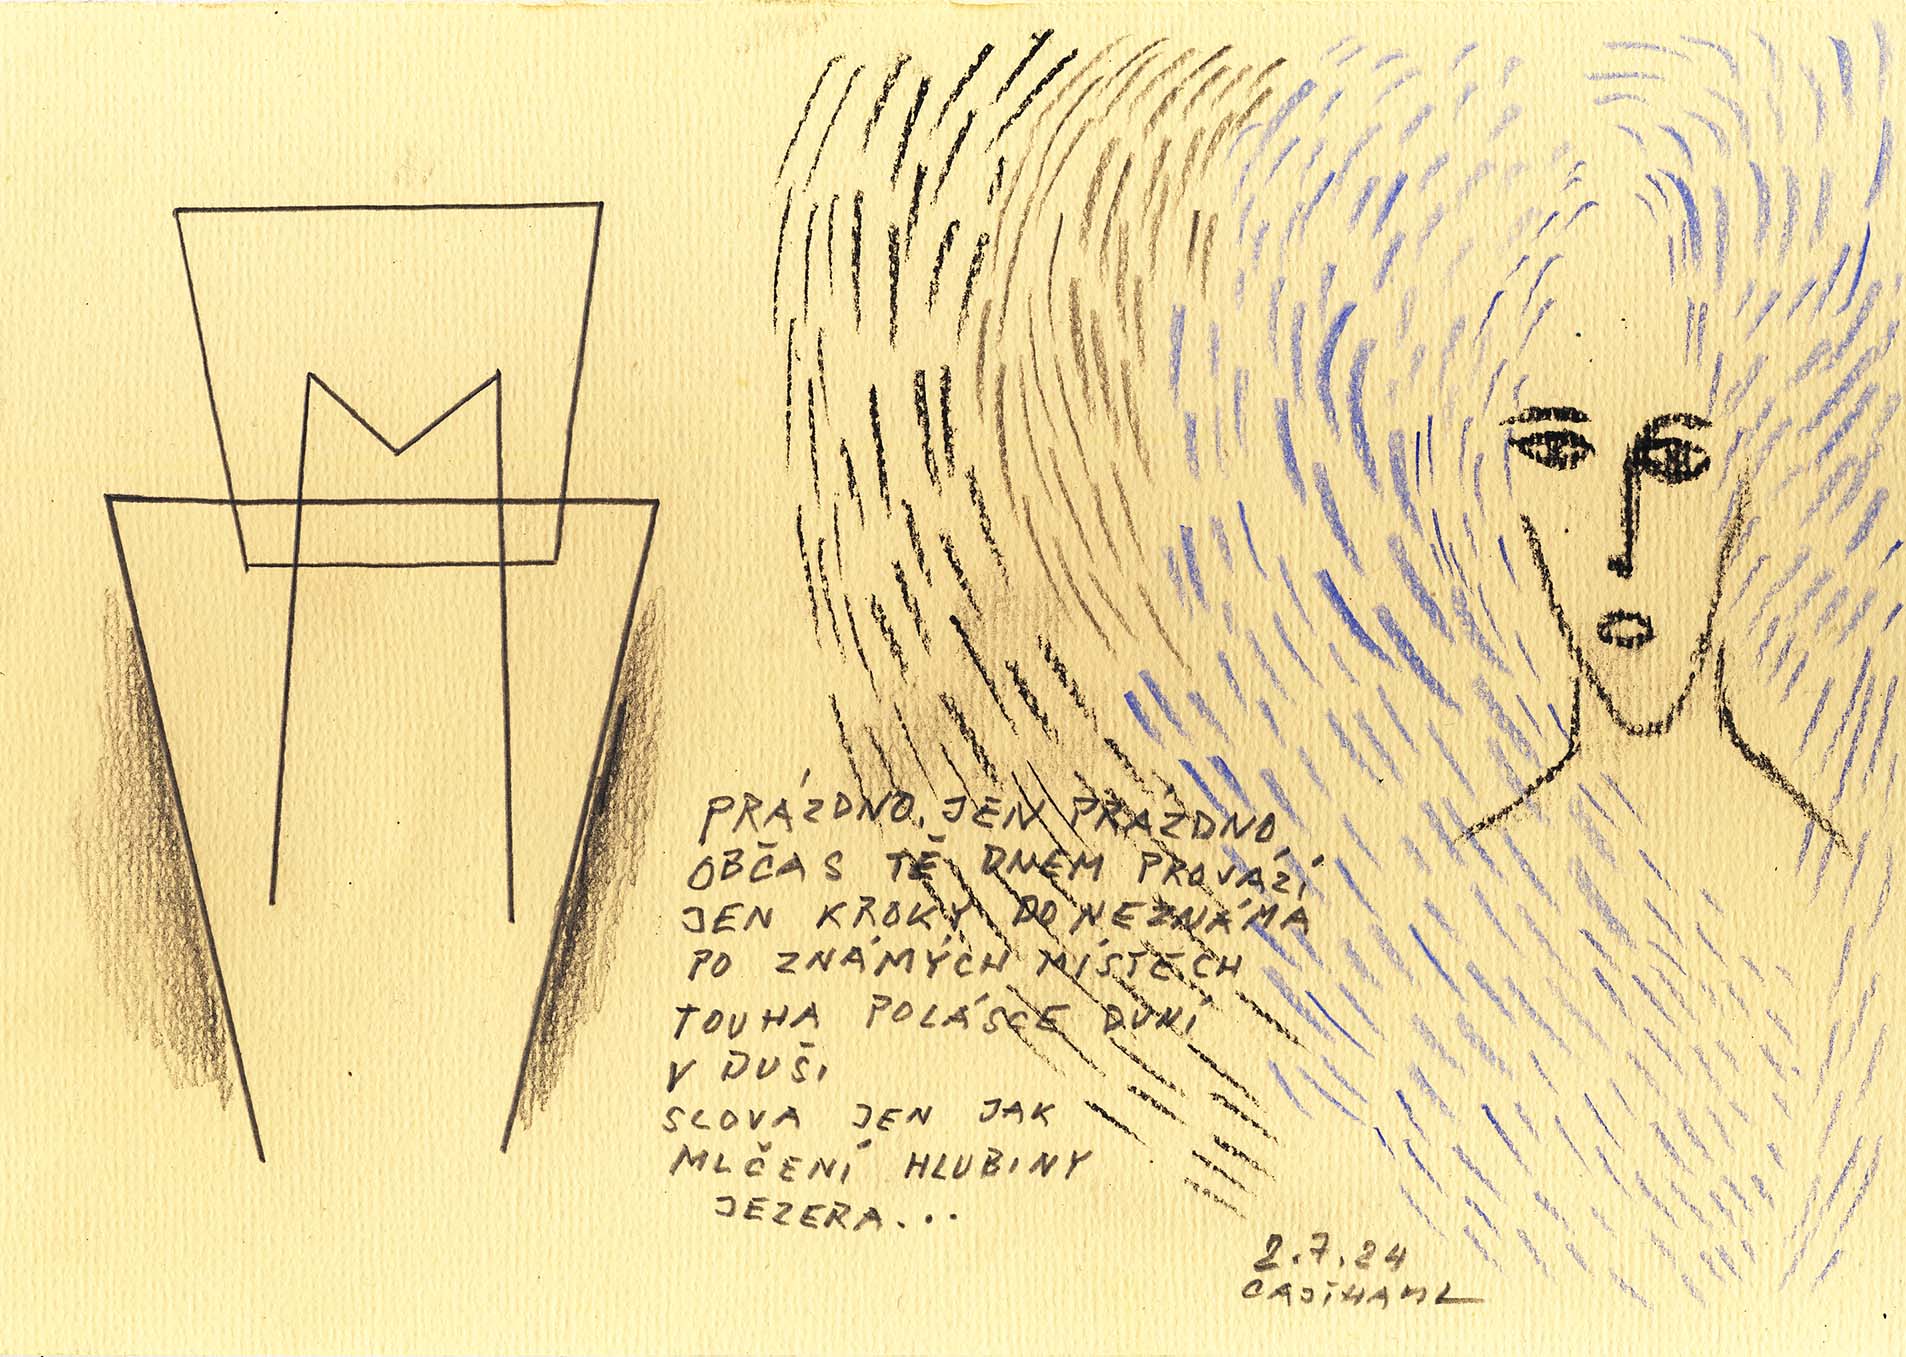 PRÁZDNO, JEN PRÁZDNO
OBČAS TĚ DNEM PROVÁZÍ
JEN KROKY DO NEZNÁMA
PO ZNÁMÝCH MÍSTECH
TOUHA PO LÁSCE DUNÍ
V DUŠI
SLOVA JEN JAK
MLČENÍ HLUBINY
JEZERA...
2.7.24